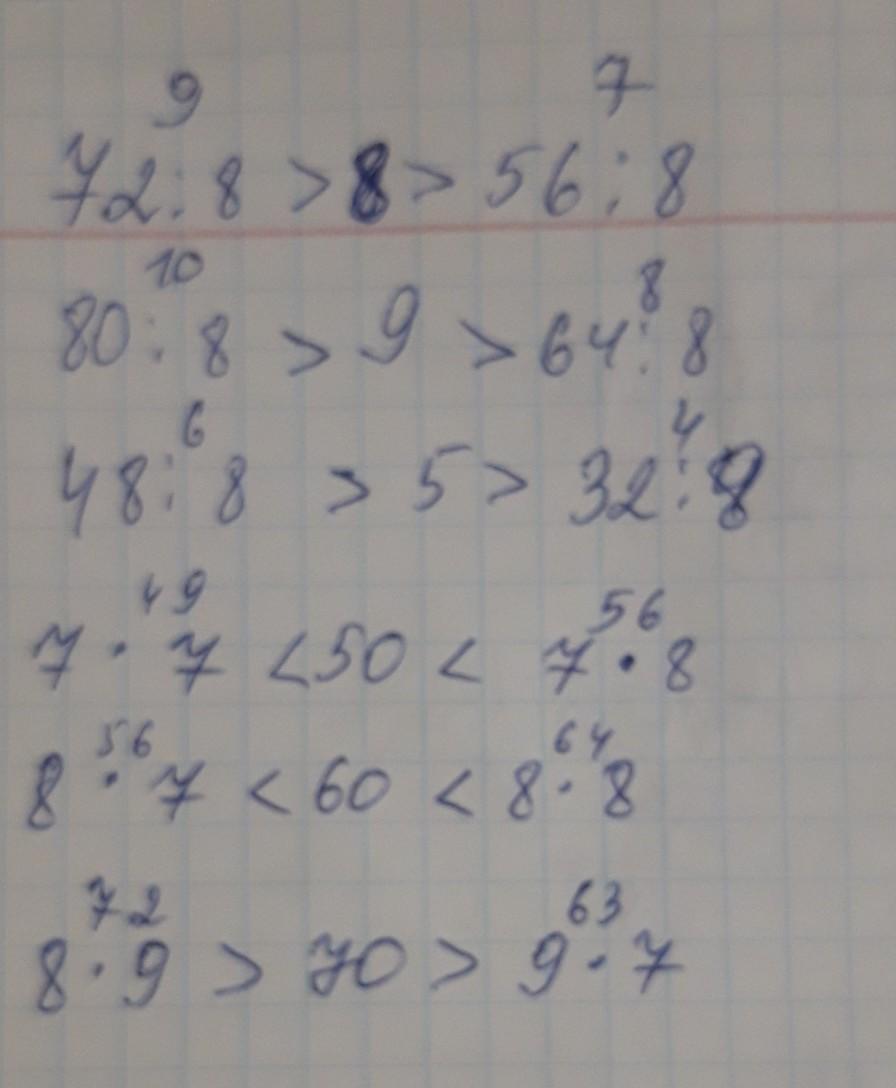 9 7
72 : 8 > 8 > 56 : 8
10 8
80 : 8 > 9 > 64 : 8
6 4
48 : 8 > 5 > 32 : 8
49 56
7 · 7 < 50 < 7 · 8
56 64
8 · 7 < 60 < 8 · 8
72 63
8 · 9 > 70 > 9 · 7